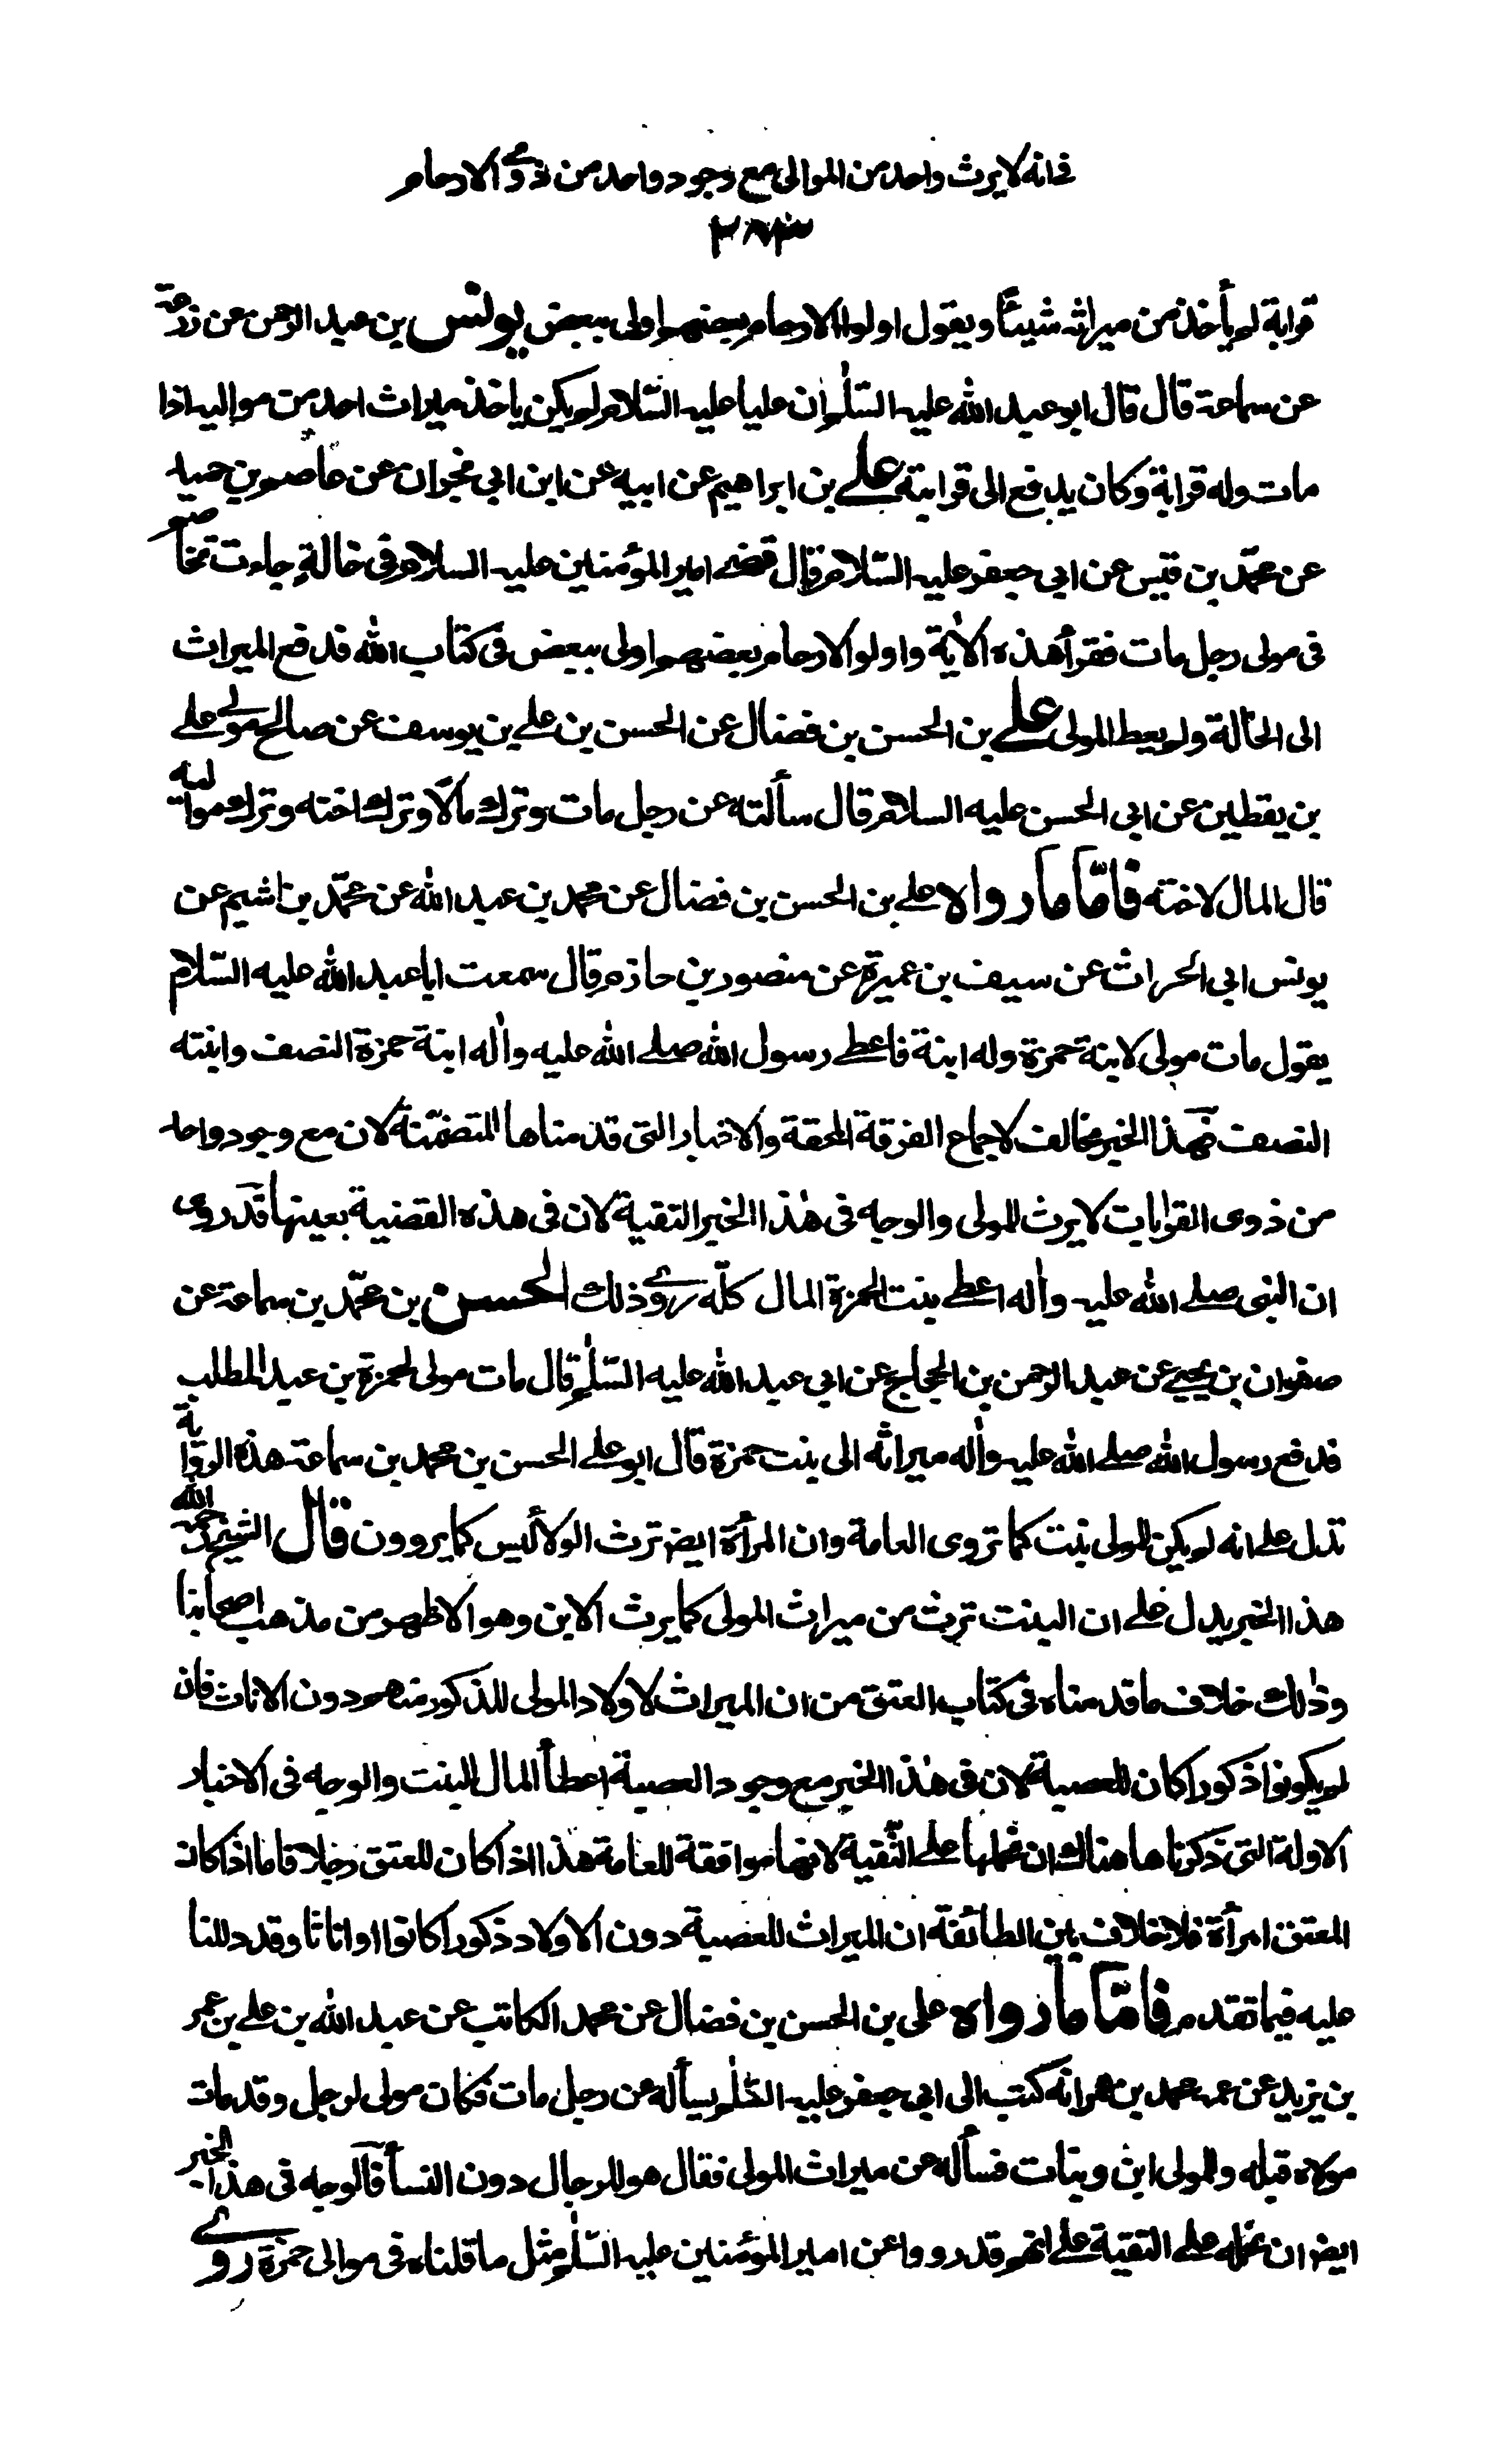 فى انه لا يرث واحد من الموالى مع وجود واحد من ذوى الارحام
٣٨٣
قرابة لم يأخذ من ميراثه شيئًا ويقول اولوا الارحام بعضهم اولى ببعض يونس بن عبد الرحمن عن زرعة
عن سماعة قال قال ابو عبد الله عليه السّلٰم ان عليا عليه السّلام لم يكن ياخذ ميراث احد من مواليه اذا
مات وله قرابة وكان يدفع الى قرابته على بن ابراهيم عن ابيه عن ابن ابي نجران عن عاصم بن حميد
عن محمّد بن قيس عن ابي جعفر عليه السّلام قال قضى امير المؤمنين عليه السلام فى خالةٍ جاءت تخاصم
فى مولى رجل مات فقرأ هذه الاٰية واولوا الارحام بعضهم اولى ببعض فى كتاب الله فدفع الميراث
الى الخالة ولم يعط المولى على بن الحسن بن فضال عن الحسن بن على بن يوسف عن صالح مولى على
بن يقطين عن ابى الحسن عليه السلام قال سألته عن رجل مات وترك مالًا وترك اخته وترك مواليه
قال المال لاخته فامّا ما رواه على بن الحسن بن فضال عن محمد بن عبد الله عن محمّد بن اشيم عن
يونس ابى الحراث عن سيف بن عميرة عن منصور بن حازم قال سمعت ابا عبد الله عليه السّلام
يقول مات مولى لابنة حمزة وله ابنة فاعطى رسول الله صلى الله عليه واٰله ابنة حمزة النصف وابنته
النصف فهذا الخبر مخالف لاجماع الفرقة المحقة والاخبار التى قدمناها المتضمّنة لان مع وجود واحد
من ذوى القرابات لا يرث المولى والوجه فى هٰذا الخبر التقية لان فى هذه القضية بعينها قد روى
ان النبى صلى الله عليه واٰله اعطى بنت الحمزة المال كلّه روى ذلك الحسن بن محمّد بن سماعة عن
صفوان بن يحيى عن عبد الرحمن بن الحجاج عن ابي عبد الله عليه السّلٰم قال مات مولى لحمزة بن عبد المطلب
فدفع رسول الله صلى الله عليه واٰله ميراثه الى بنت حمزة قال ابو على الحسن بن محمد بن سماعة هذه الرواية
تدل على انه لم يكن للمولى بنت كما تروى العامة وان المرأة ايض ترث الولاء ليس كما يروون قال الشيخ رحمه الله
هذا الخبر يدل على ان البنت ترث من ميراث المولى كما يرث الابن وهو الاظهر من مذهب اصحابنا
وذٰلك خلاف ما قدمناه فى كتاب العتق من ان الميراث لاولاد المولى للذكور منهم دون الاناث فان
لم يكونوا ذكورا كان للعصبة لان فى هٰذا الخبر مع وجود العصبة اعطأ المال للبنت والوجه فى الاخبار
الاولة التى ذكرناها هناك ان نحملها على التّقية لانها موافقة للعامة هذا اذا كان للعتق رجلا فاما اذا كان
المعتق امرأة فلا خلاف بين الطائفة ان الميراث للعصبة دون الاولاد ذكورا كانوا او اناثا وقد دللنا
عليه فيما تقدم فامّا ما رواه على بن الحسن بن فضال عن محمد الكاتب عن عبد الله بن على بن عمر
بن يزيد عن عمه محمد بن عمر انه كتب الى ابي جعفر عليه السّلٰم يسأله عن رجل مات فكان مولى لرجل وقد مات
مولاه قبله وللمولى ابن وبنات فسأله عن ميراث المولى فقال هو للرجال دون النسأ فالوجه فى هذا الخبر
ايض ان نحمله على التقية على انهم قد رووا عن امير المؤمنين عليه السّلٰم مثل ما قلناه فى موالى حمزة روى